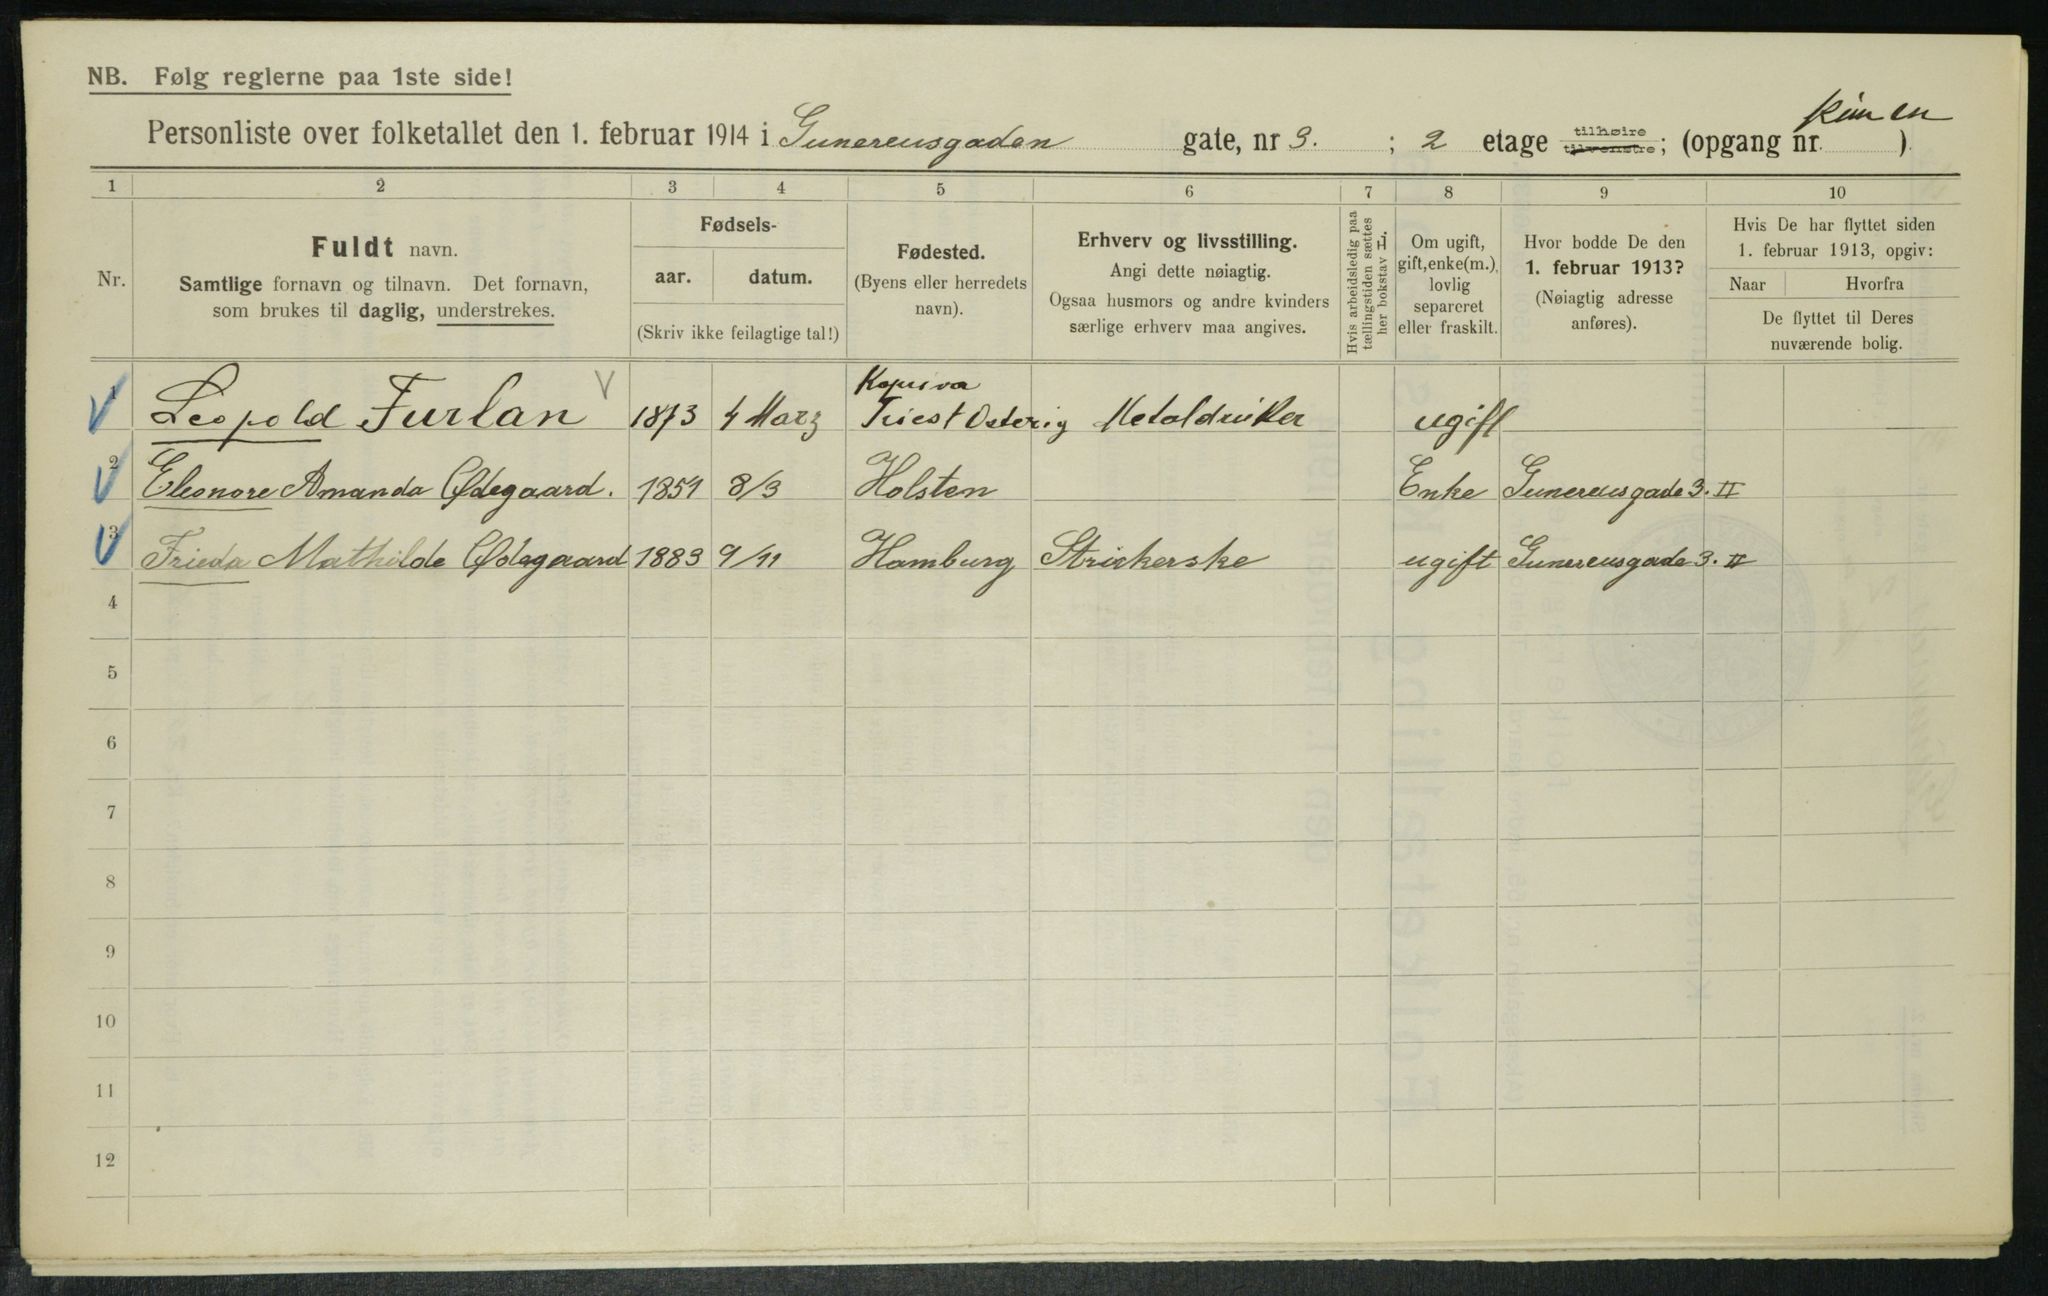 NB. Følg reglerne paa 1ste side!
Personliste over folketallet den 1. februar 1914 i Gunereusgaden gate, nr 3. ; 2 etage tilhøire tilvenstre; (opgang nr. )
1 2 3 4 5 6 7 8 9 10
Nr.
Fuldt navn.
Samtlige fornavn og tilnavn. Det fornavn,
som brukes til daglig, understrekes.
Fødsels-
aar. datum.
(Skriv ikke feilagtige tal!)
Fødested.
(Byens eller herredets
navn).
Erhverv og livsstilling.
Angi dette nøiagtig.
Ogsaa husmors og andre kvinders
særlige erhverv maa angives.
Hvis arbeidsledig paa
tællingstiden sættes
her bokstav L.
Om ugift,
gift, enke(m.),
lovlig
separeret
eller fraskilt.
Hvor bodde De den
1. februar 1913?
(Nøiagtig adresse
anføres).
Hvis De har flyttet siden
1. februar 1913, opgiv:
Naar Hvorfra
De flyttet til Deres
nuværende bolig.
Kopriva
1 Leopold Furlan 1873 4 Marz Triest Osterig Metaldrukker ugift
2 Eleonore Amanda Ødegaard. 1851 8/3 Holsten Enke Gunereusgade 3. II
3 Frieda Mathilde Ødegaard 1883 9/11 Hamburg Strikerske ugift Gunereusgade 3. II
4
5
6
7
8
9
10
11
12